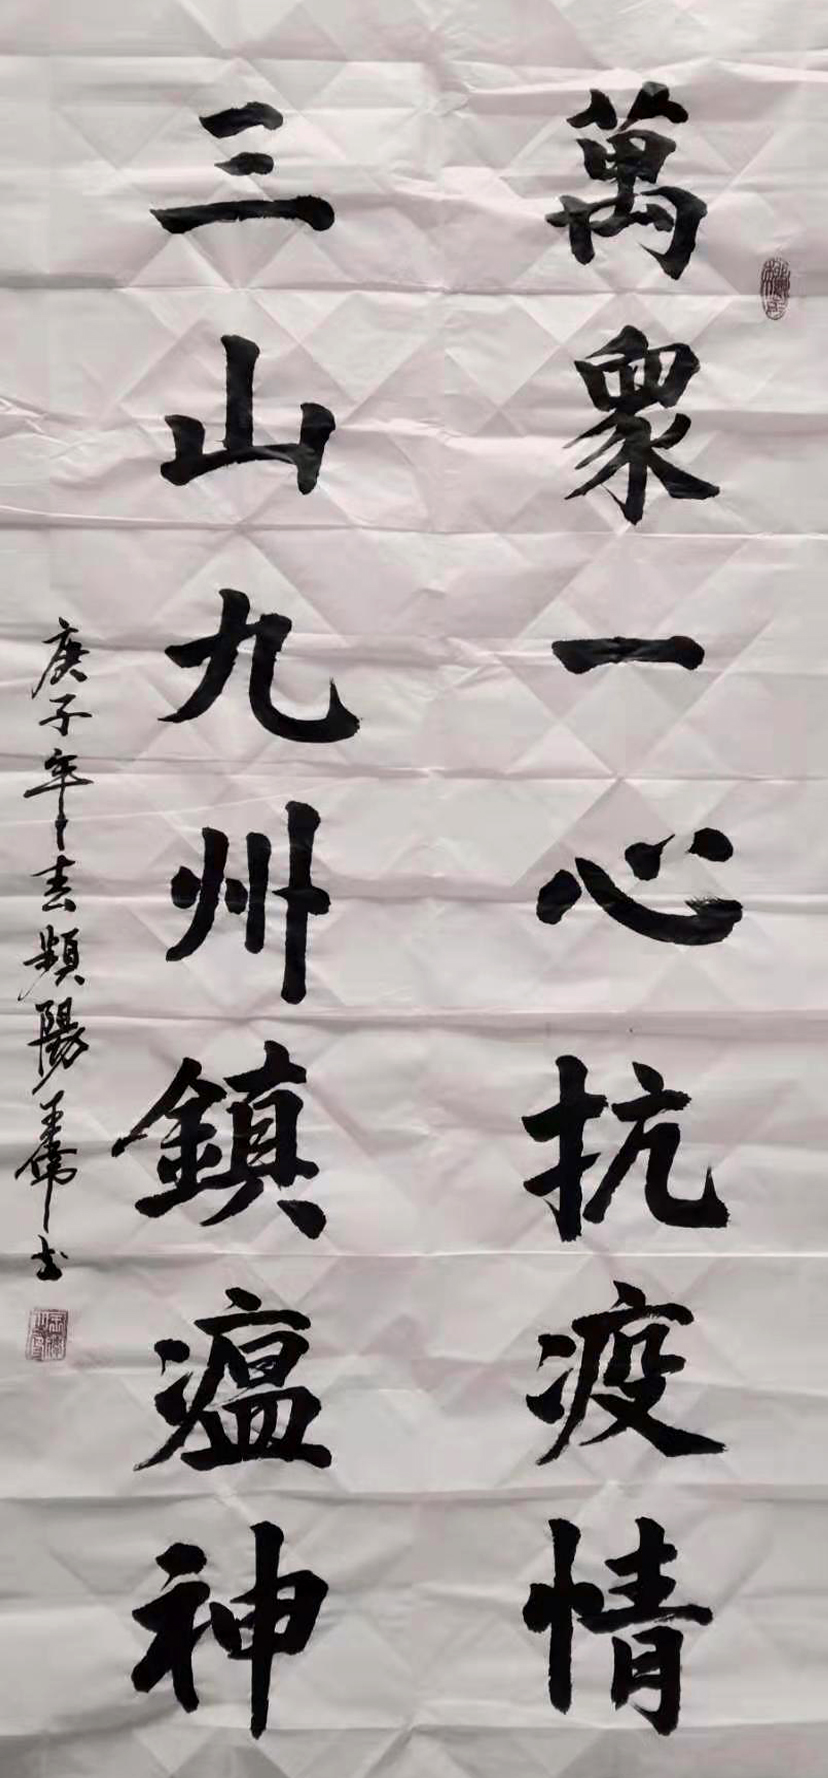 萬眾一心抗疫情
三山九州鎮瘟神
庚子年春頻陽王偉書